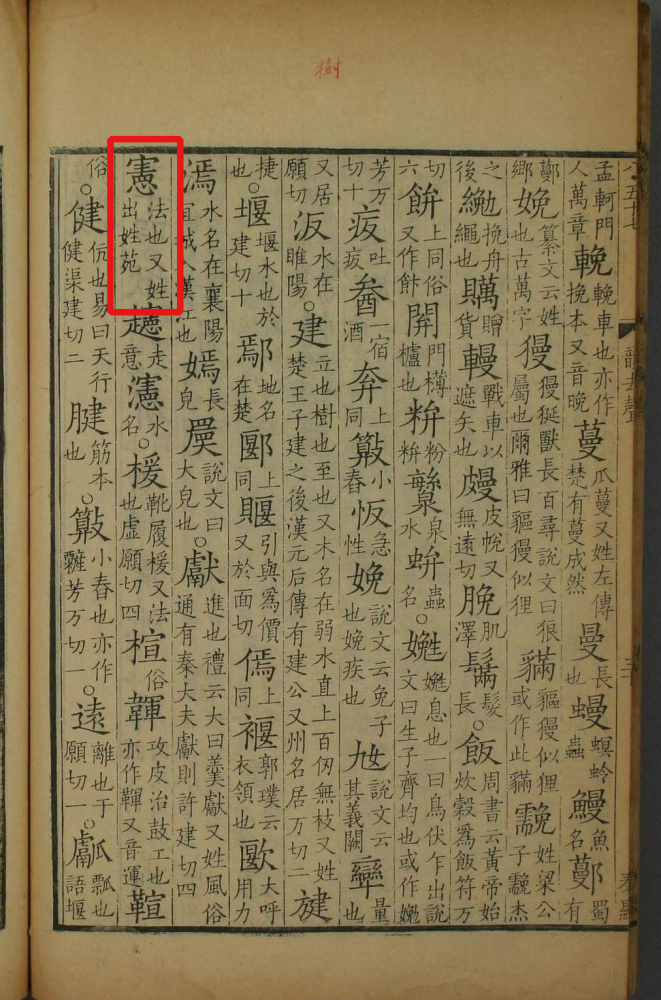 樹
孟軻門人萬章輓輓車也亦作挽本又音晚蔓瓜蔓又姓左傳楚有蔓成然曼長也蟃螟蛉蟲鰻魚名鄤蜀有
鄭鄉娩纂文云姓也古萬字獌獌狿獸長百尋說文曰狼屬也爾雅曰貙獌似狸貙獌似狸或作此姓梁公子杰
之後挽舟繩也贎贈貨戰車以遮矢也皮悅也又無遠切脕肌澤鬗髮長○飯周書云黃帝始炊穀爲飯符万
切六餅上同俗又作飰開門欂櫨也粉泉水蟲名○嬎嬎息也一曰鳥伏乍出說文曰生子齊均也或作
芳万切十疲吐疲一宿酒奔上同小舂急性娩說文云兔子也娩疾也說文云其義闕量也
又居願切汳水在睢陽○建立也樹也至也又木名在弱水直上百仞無枝又姓楚王子建之後漢元后傳有建公又州名居万切二
揵也○堰堰水也於建切十鄢地名在楚郾上同引與爲價又於面切傿上同褗郭璞云衣領也大呼用力
水名在襄陽宜城入漢江也嫣長皃說文曰大皃也○獻進也禮云大曰羹獻又姓風俗通有秦大夫獻則許建切四
憲法也又姓出姓苑走意瀗水名○楥靴履楥又法也虛願切四楦俗韗攻皮治鼓工也亦作又音運
俗○健伉也易曰天行健渠建切二腱筋本也○小舂也亦作芳万切一○遠離也于願切一○瓢也語堰